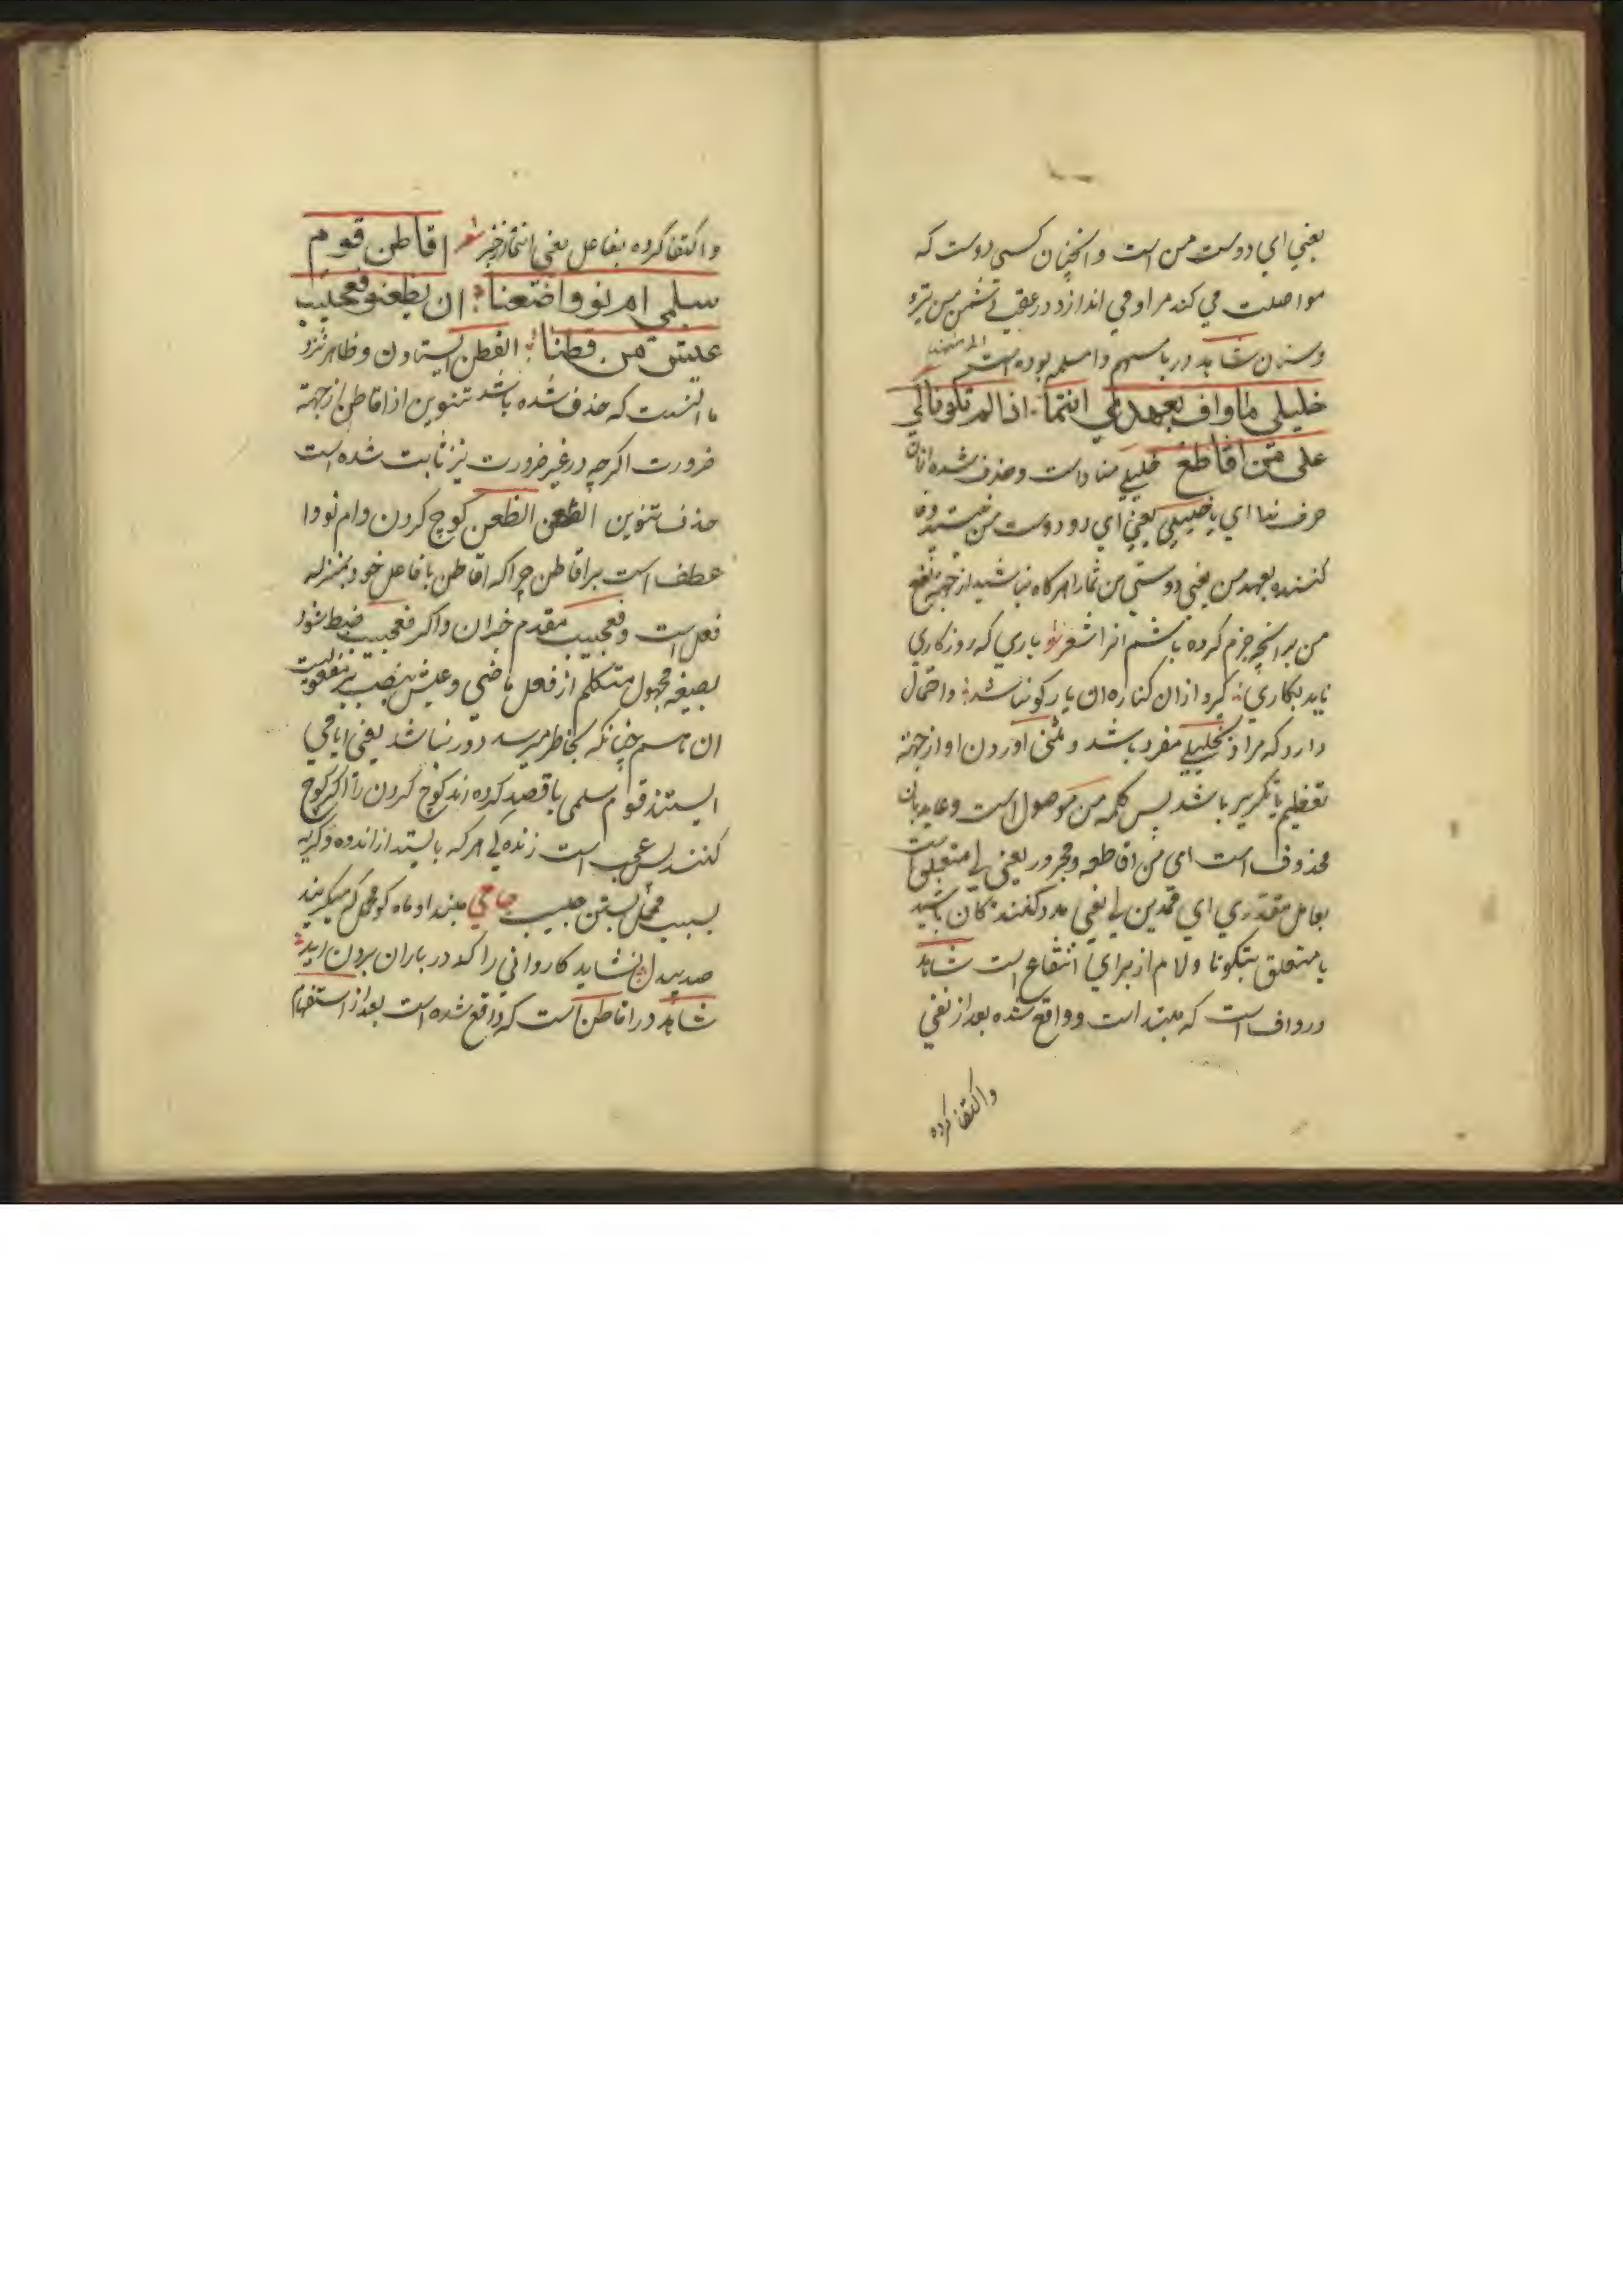 یعنی ای دوست من است و انچنان کسی دوست که
مواصلت می کند مرا و می اندازد در عقب دشمن من تیر
و سنان شاهد در بامسهم وامسلمه بوده است
خليلي ما واف بعهدي انتما اذا لم تكونا لي
على من اقاطع خلیلی منادا است و حذف شده از ان
حرف ندا ای یا خلیلی یعنی ای دو دوست من نیستید وفا
کننده بعهد من یعنی دوستی من شما را هرگاه نباشید از جهة نفع
من بر انچه جزم کرده باشم انرا شعر یاری که روزکاری
ناید بکاری کرد از ان کناره ان یار کو نباشد و احتمال
دارد که مراد بخلیلی مفرد باشد و مثنی اوردن او از جهة
تعظیم یا تکریر باشد پس کلمه من موصول است و عاید بان
محذوف است ای من اقاطعه و مجرور یعنی لی متعلق است
بعامل مقدری ای ممدین لی یعنی مدد کنندکان باشید
یا متعلق بتکونا و لام از برای انتفاع است شاهد
در واف است که مبتدا است و واقع شده بعد از نفی
واکتفا کرده
و اکتفا کرده بفاعل یعنی انتما از خبر شعر اقاطن قوم
سلمى ام نووا ضعنا ان يظعنوا فعجيب
عيش من قطنا القطن ایستادن و ظاهر نزد
ما انست که حذف شده باشد تنوین از اقاطن از جهة
ضرورت اکرچه در غیر ضرورت نیز ثابت شده است
حذف تنوین الظعن الظعن کوچ کردن و ام نووا
عطف است بر اقاطن چرا که اقاطن با فاعل خود بمنزله
فعل است و فعجیب مقدم خبر ان و اکر فعجبت ضبط شود
بصیغه مجهول متکلم از فعل ماضی و عیش بنصب بر مفعولیت
ان هم چنانکه بخاطر میرسد دور نباشد یعنی ایا می
ایستند قوم سلمی یا قصد کرده اند کوچ کردن را اکر کوچ
کنند پس عجب است زنده کی هر که بایستد از اندوه و کریه
بسبب محمل بستن حبیب جامی مبند او ماه کو محمل که میکریند
صد بیدل نشاید کاروانی را که در باران برون اید
شاهد در اقاطن است که واقع شده است بعد از استفهام